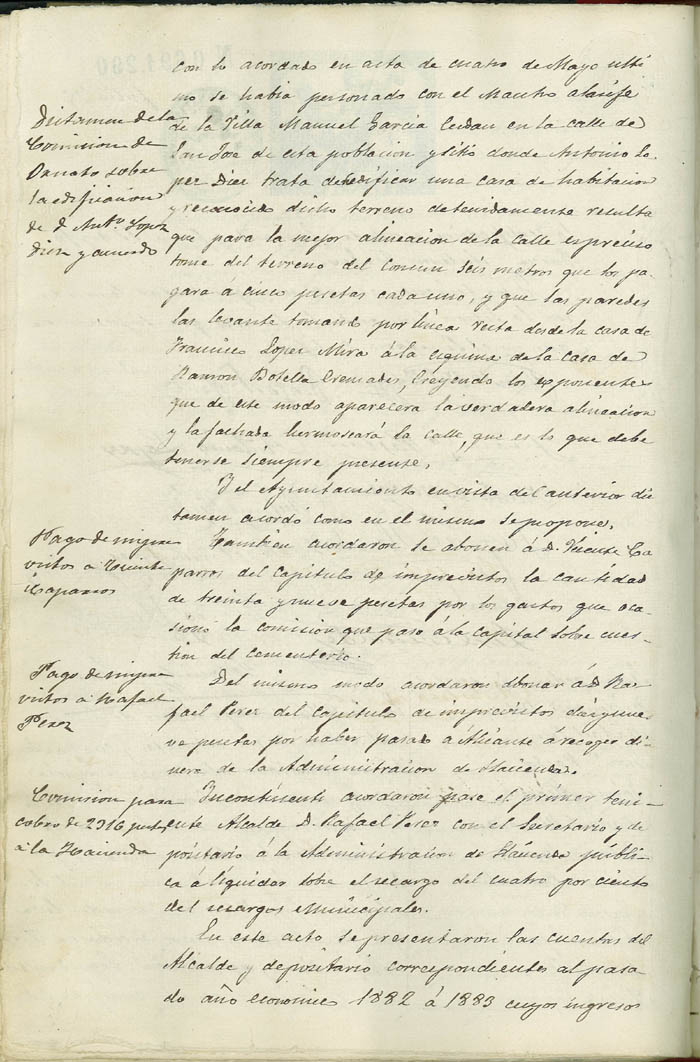 con lo acordado en acta de cuatro de Mayo ulti
mo se habia personado con el Maestro alarife
de la Villa Manuel Garcia Cerdan en la calle de
San Jose de esta poblacion y sitio donde Antonio Lo
pez Diez trata de edificar una casa de habitacion
y reconocido dicho terreno detenidamente resulta
que para la mejor alineacion de la calle es preciso
tome del terreno del comun seis metros que los pa
gara a cinco pesetas cada uno, y que las paredes
las levante tomando por linea recta desde la casa de
Francisco Lopez Mira á la esquina de la casa de
Ramon Botella Cremades, creyendo los exponentes
que de este modo aparecera la verdadera alineacion
y la fachada hermoseará la calle, que es lo que debe
tenerse siempre presente.
Y el Ayuntamiento en vista del anterior dic
tamen acordó como en el mismo se propone.
Tambien acordaron se abonen á D. Vicente Ca
parros del capitulo de imprevistos la cantidad
de treinta y nueve pesetas por los gastos que oca
sionó la comision que pasó á la capital sobre cues
tion del cementerio.
Del mismo modo acordaron abonar á D. Ra
fael Perez del capitulo de imprevistos diez y nue
ve pesetas por haber pasado a Alicante á recoger di
nero de la Administracion de Hacienda.
Incontinenti acordaron pase el primer teni
ente Alcalde D. Rafael Perez con el Secretario y de
positario á la Administracion de Hacienda públi
ca á liquidar sobre el recargo del cuatro por ciento
del recargos Municipales.
En este acto se presentaron las cuentas del
Alcalde y depositario correspondientes al pasa
do año economico 1882 á 1883 cuyos ingresos
Dictamen de la
Comision de
Ornato sobre
la edificacion
de D. Antº. Lopez
Diez y acuerdo
Pago de impre
vistos a Vicente
Caparros
Pago de impre
vistos a Rafael
Perez
Comision para
cobro de 2916 pesetas
a la Hacienda